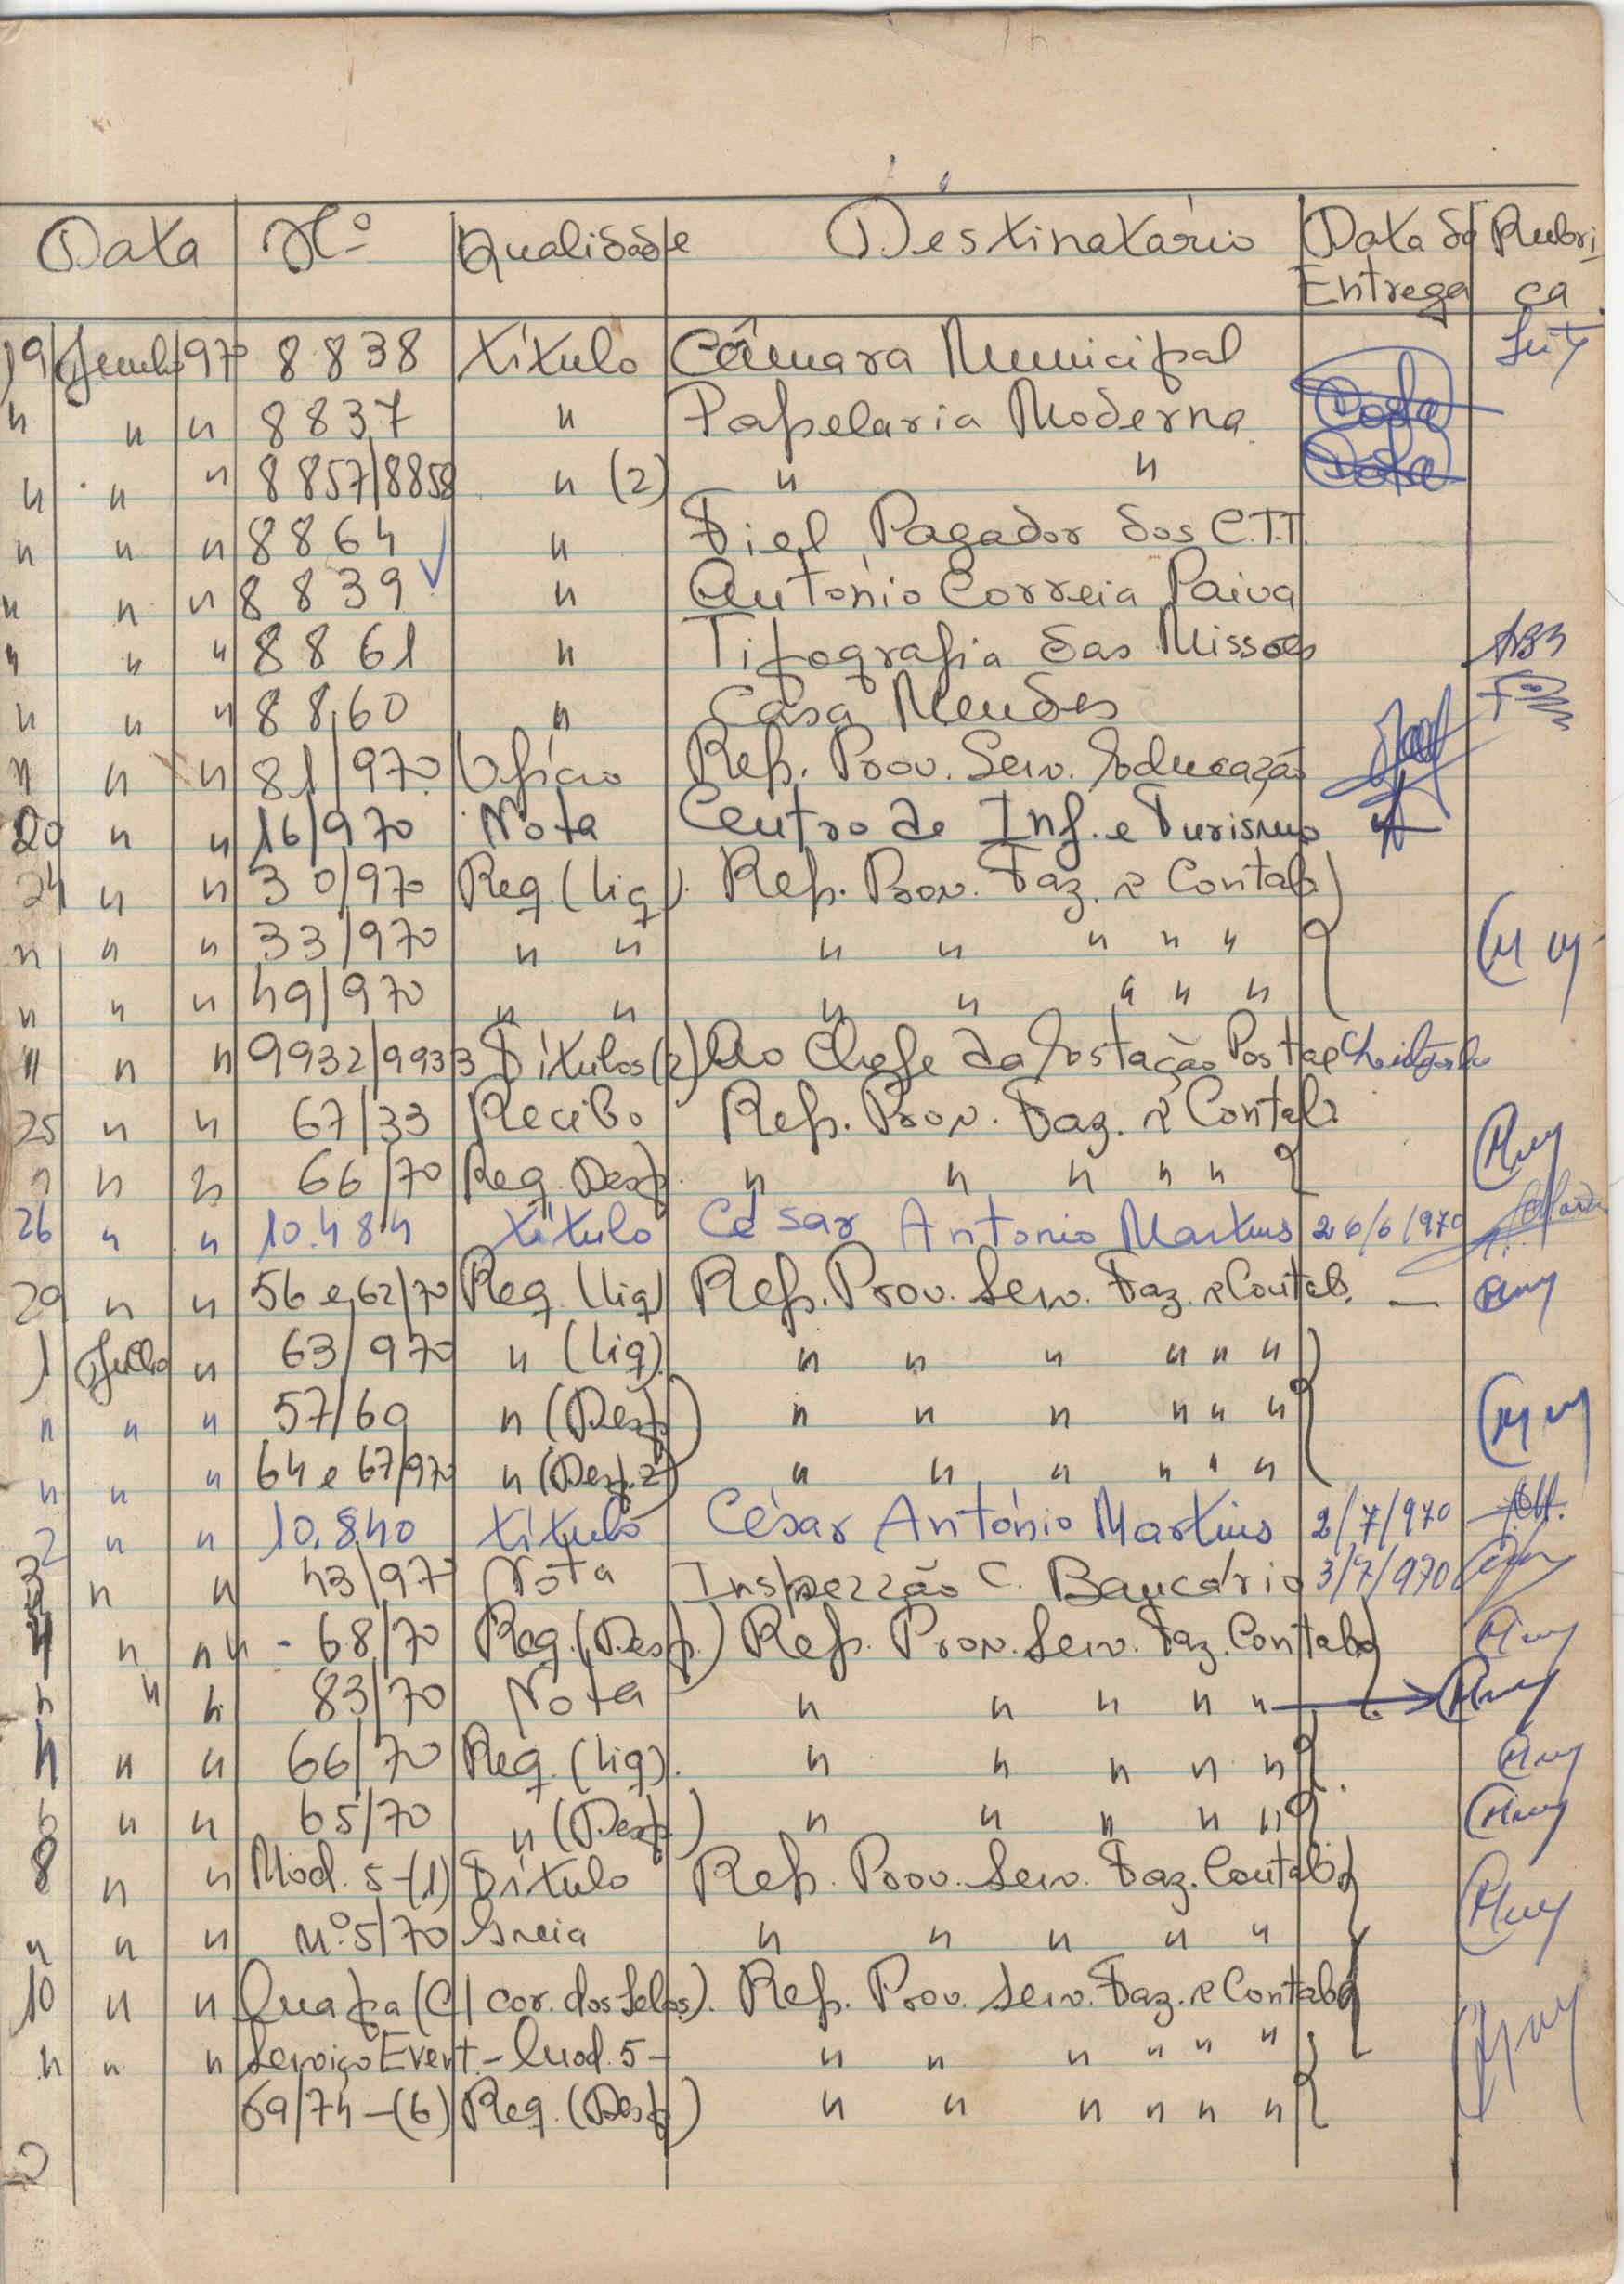 Data Nº Qualidade Destinatário Data da Entrega Rubrica
19 Junho 970 8838 Título Câmara Municipal
" " " 8837 " Papelaria Moderna Costa
" " " 8857/8858 " (2) " " Costa
" " " 8864 " Fiel Pagador dos C.T.T.
" " " 8839 " António Correia Paiva
" " " 8861 " Tipografia das Missões
" " " 8860 " Casa Mendes
" " " 81/970 Ofício Rep. Prov. Serv. Educação
20 " " 16/970 Nota Centro de Inf. e Turismo
24 " " 30/970 Req. (Liq.) Rep. Prov. Faz. e Contab.
" " " 33/970 " " " " " " "
" " " 49/970 " " " " " " "
" " " 9932/9933 Títulos (2) Ao Chefe da Estação Postal
25 " " 67/33 Recibo Rep. Prov. Faz. e Contab.
" " " 66/70 Req. Desp. " " " " "
26 " " 10.484 Título César Antonio Martins 26/6/970
29 " " 56 e 62/70 Req. (Liq) Rep. Prov. Serv. Faz. e Contab. —
1 Julho " 63/970 " (Liq.) " " " " " "
" " " 57/60 " (Desp.) " " " " " "
" " " 64 e 67/970 " (Desp. 2) " " " " " "
2 " " 10.840 Título César António Martins 2/7/970
3 " " 43/970 Nota Inspecção C. Bancário 3/7/970
4 " " " - 68/70 Req. (Desp.) Rep. Prov. Serv. Faz. Contab.
" " " 83/70 Nota " " " " "
" " " 66/70 Req. (Liq.) " " " " "
6 " " 65/70 " (Desp.) " " " " "
8 " " Mod. 5-(1) Título Rep. Prov. Serv. Faz. Contab.
" " " Nº 5/70 Guia " " " " "
10 " " (C/ cor. dos Selos). Rep. Prov. Serv. Faz. e Contab.
" " " Serviço Event. - Mod. 5 - " " " " " "
69/74 - (6) Req. (Desp) " " " " " "